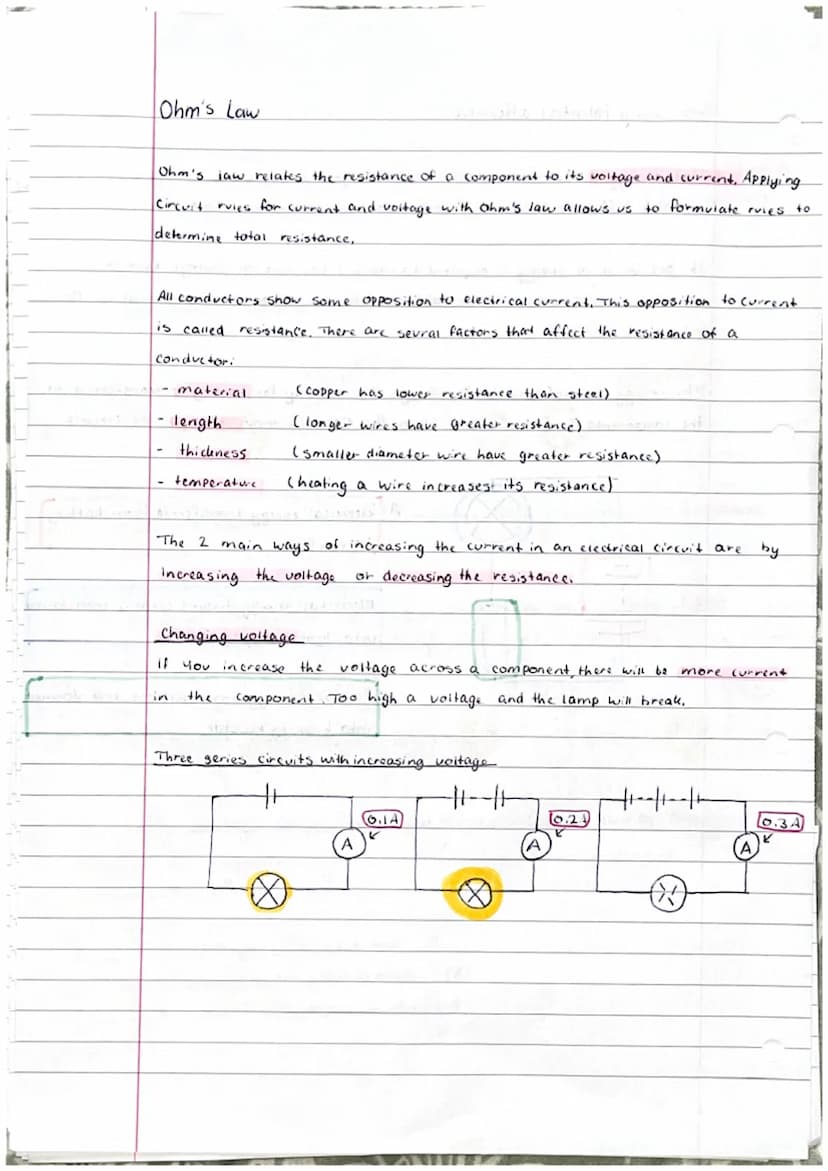 Ohm's Law
Ohm's law relates the resistance of a component to its voltage and current. Applying
circuit rules for current and voltage with Ohm's law allows us to formulate rules to
determine total resistance.
All conductors show some opposition to electrical current. This opposition to current
is called resistance. There are sevral factors that affect the resistance of a
conductor:
- material (copper has lower resistance than steel)
- length (longer wires have greater resistance)
- thickness (smaller diameter wire have greater resistance)
- temperature (heating a wire increases its resistance)
The 2 main ways of increasing the current in an electrical circuit are by
increasing the voltage or decreasing the resistance.
Changing voltage
If you increase the voltage across a component, there will be more current
in the component. Too high a voltage and the lamp will break.
Three series circuits with increasing voltage
0.1A 0.2A 0.3A
A A A